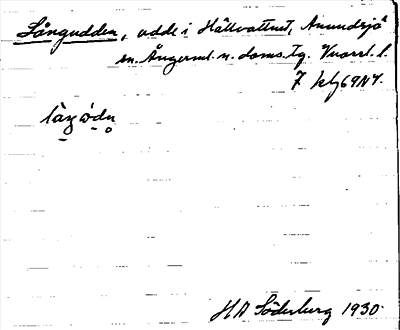 Långudden, udde i Hällvattnet, Anundsjö
sn. Ångerml. n. doms. tg.
7 kbl 69NV.
HA Söderberg 1930.